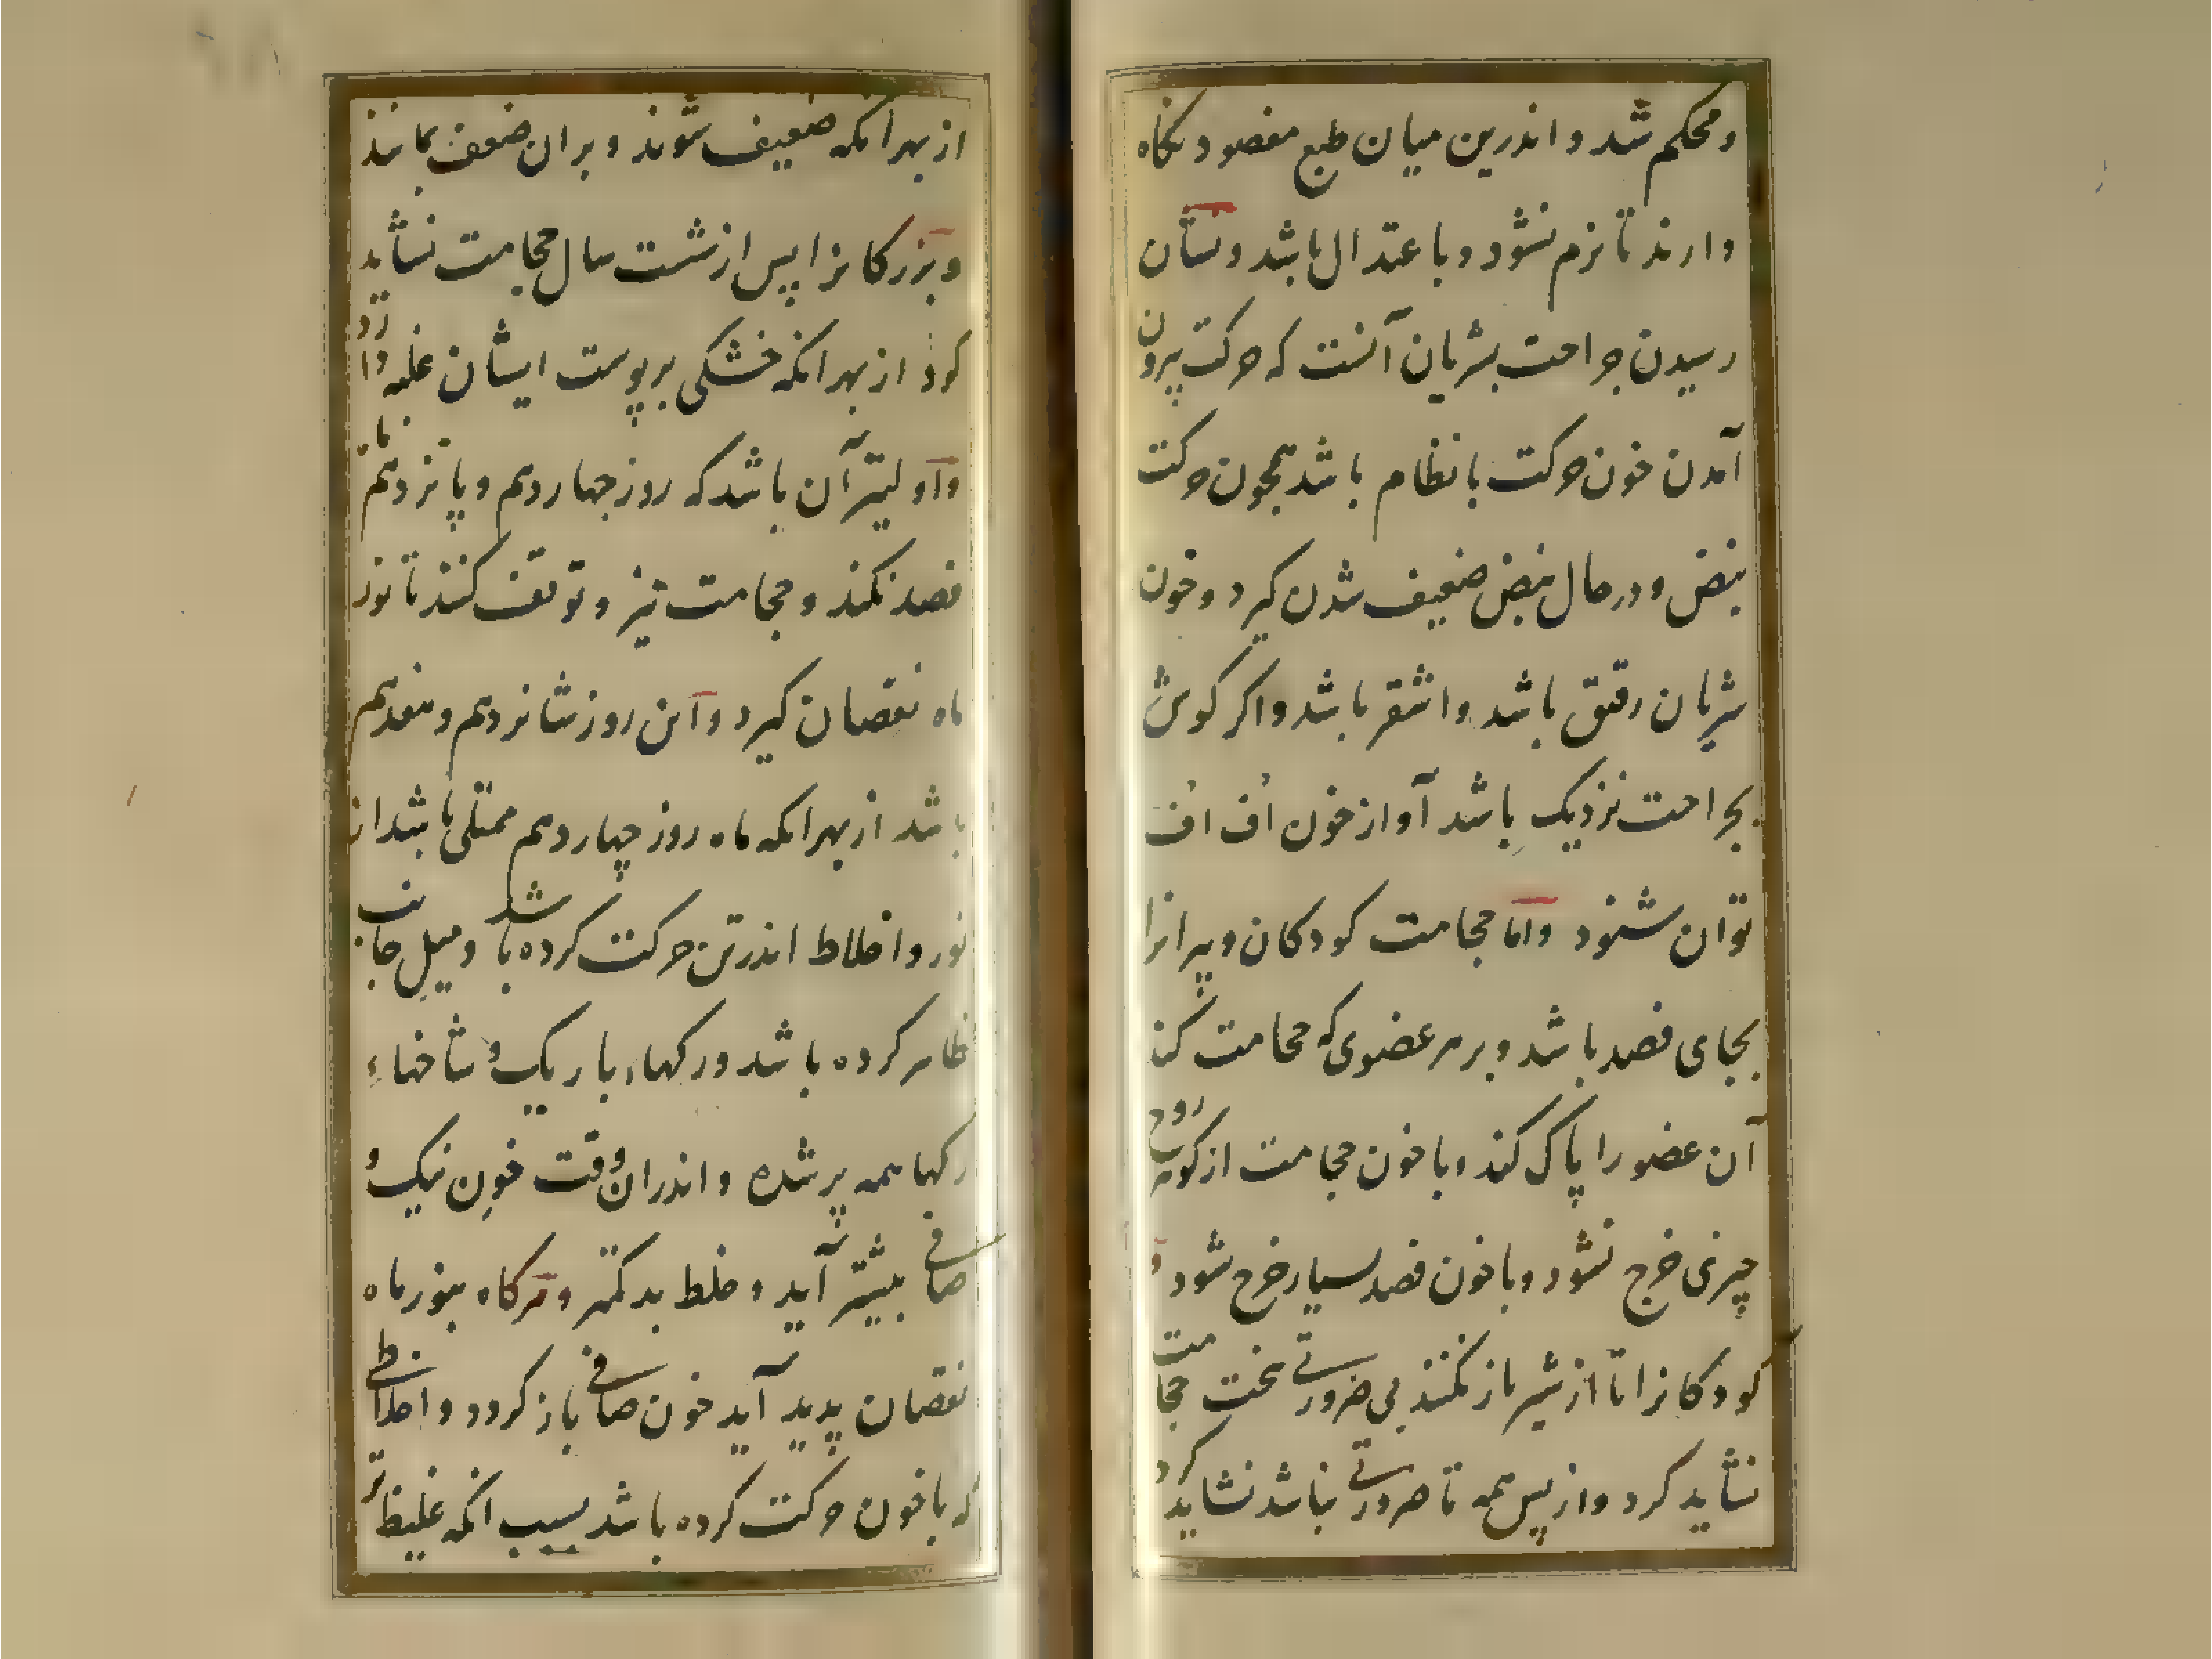 ومحکم شد و اندرین میان طبع مفصود نکاه
دارند تا نرم نشود و با عتدال باشد و نشان
رسیدن جراحت بشریان آنست که حرکت بیرون
آمدن خون حرکت بانظام باشد همچون حرکت
نبض و در حال نبض ضعیف شدن کیرد و خون
شریان رقیق باشد و اشقر باشد و اکر کوش
بجراحت نزدیک باشد آواز خون اُف اُف
توان شنود و اما حجامت کودکان و پیرانرا
بجای فصد باشد و بر هر عضوی که حجامت کنند
آن عضو را پاک کند و با خون حجامت از کوهر روح
چیزی خرج نشود و با خون فصد بسیار خرج شود و
کودکانرا تا از شیر باز نکنند بی ضرورتی سخت حجامت
نشاید کرد و از پس همه تا ضرورتی نباشد نشاید کرد
از بهر انکه ضعیف شوند و بران ضعف بمانند
و بزرکانرا پس از شست سال حجامت نشاید
کرد از بهر انکه خشکی بر پوست ایشان غلبه دارد
و اولیتر آن باشد که روز چهاردهم و پانزدهم ماه
فصد نکنند و حجامت نیز و توقف کنند تا نور
ماه نقصان کیرد و این روز شانزدهم و هفدهم
باشد از بهر انکه ماه روز چهاردهم ممتلی باشد از
نور و اخلاط اندر تن حرکت کرده باشد و میل جانب
ظاهر کرده باشد و رکهاء باریک و شاخهاء
رکها همه پر شده و اندران وقت خون نیک و
صافی بیشتر آید و خلط بد کمتر و هرکاه بنور ماه
نقصان پدید آید خون صافی باز کردد و اخلاطی
که با خون حرکت کرده باشد بسبب انکه غلیظ تر